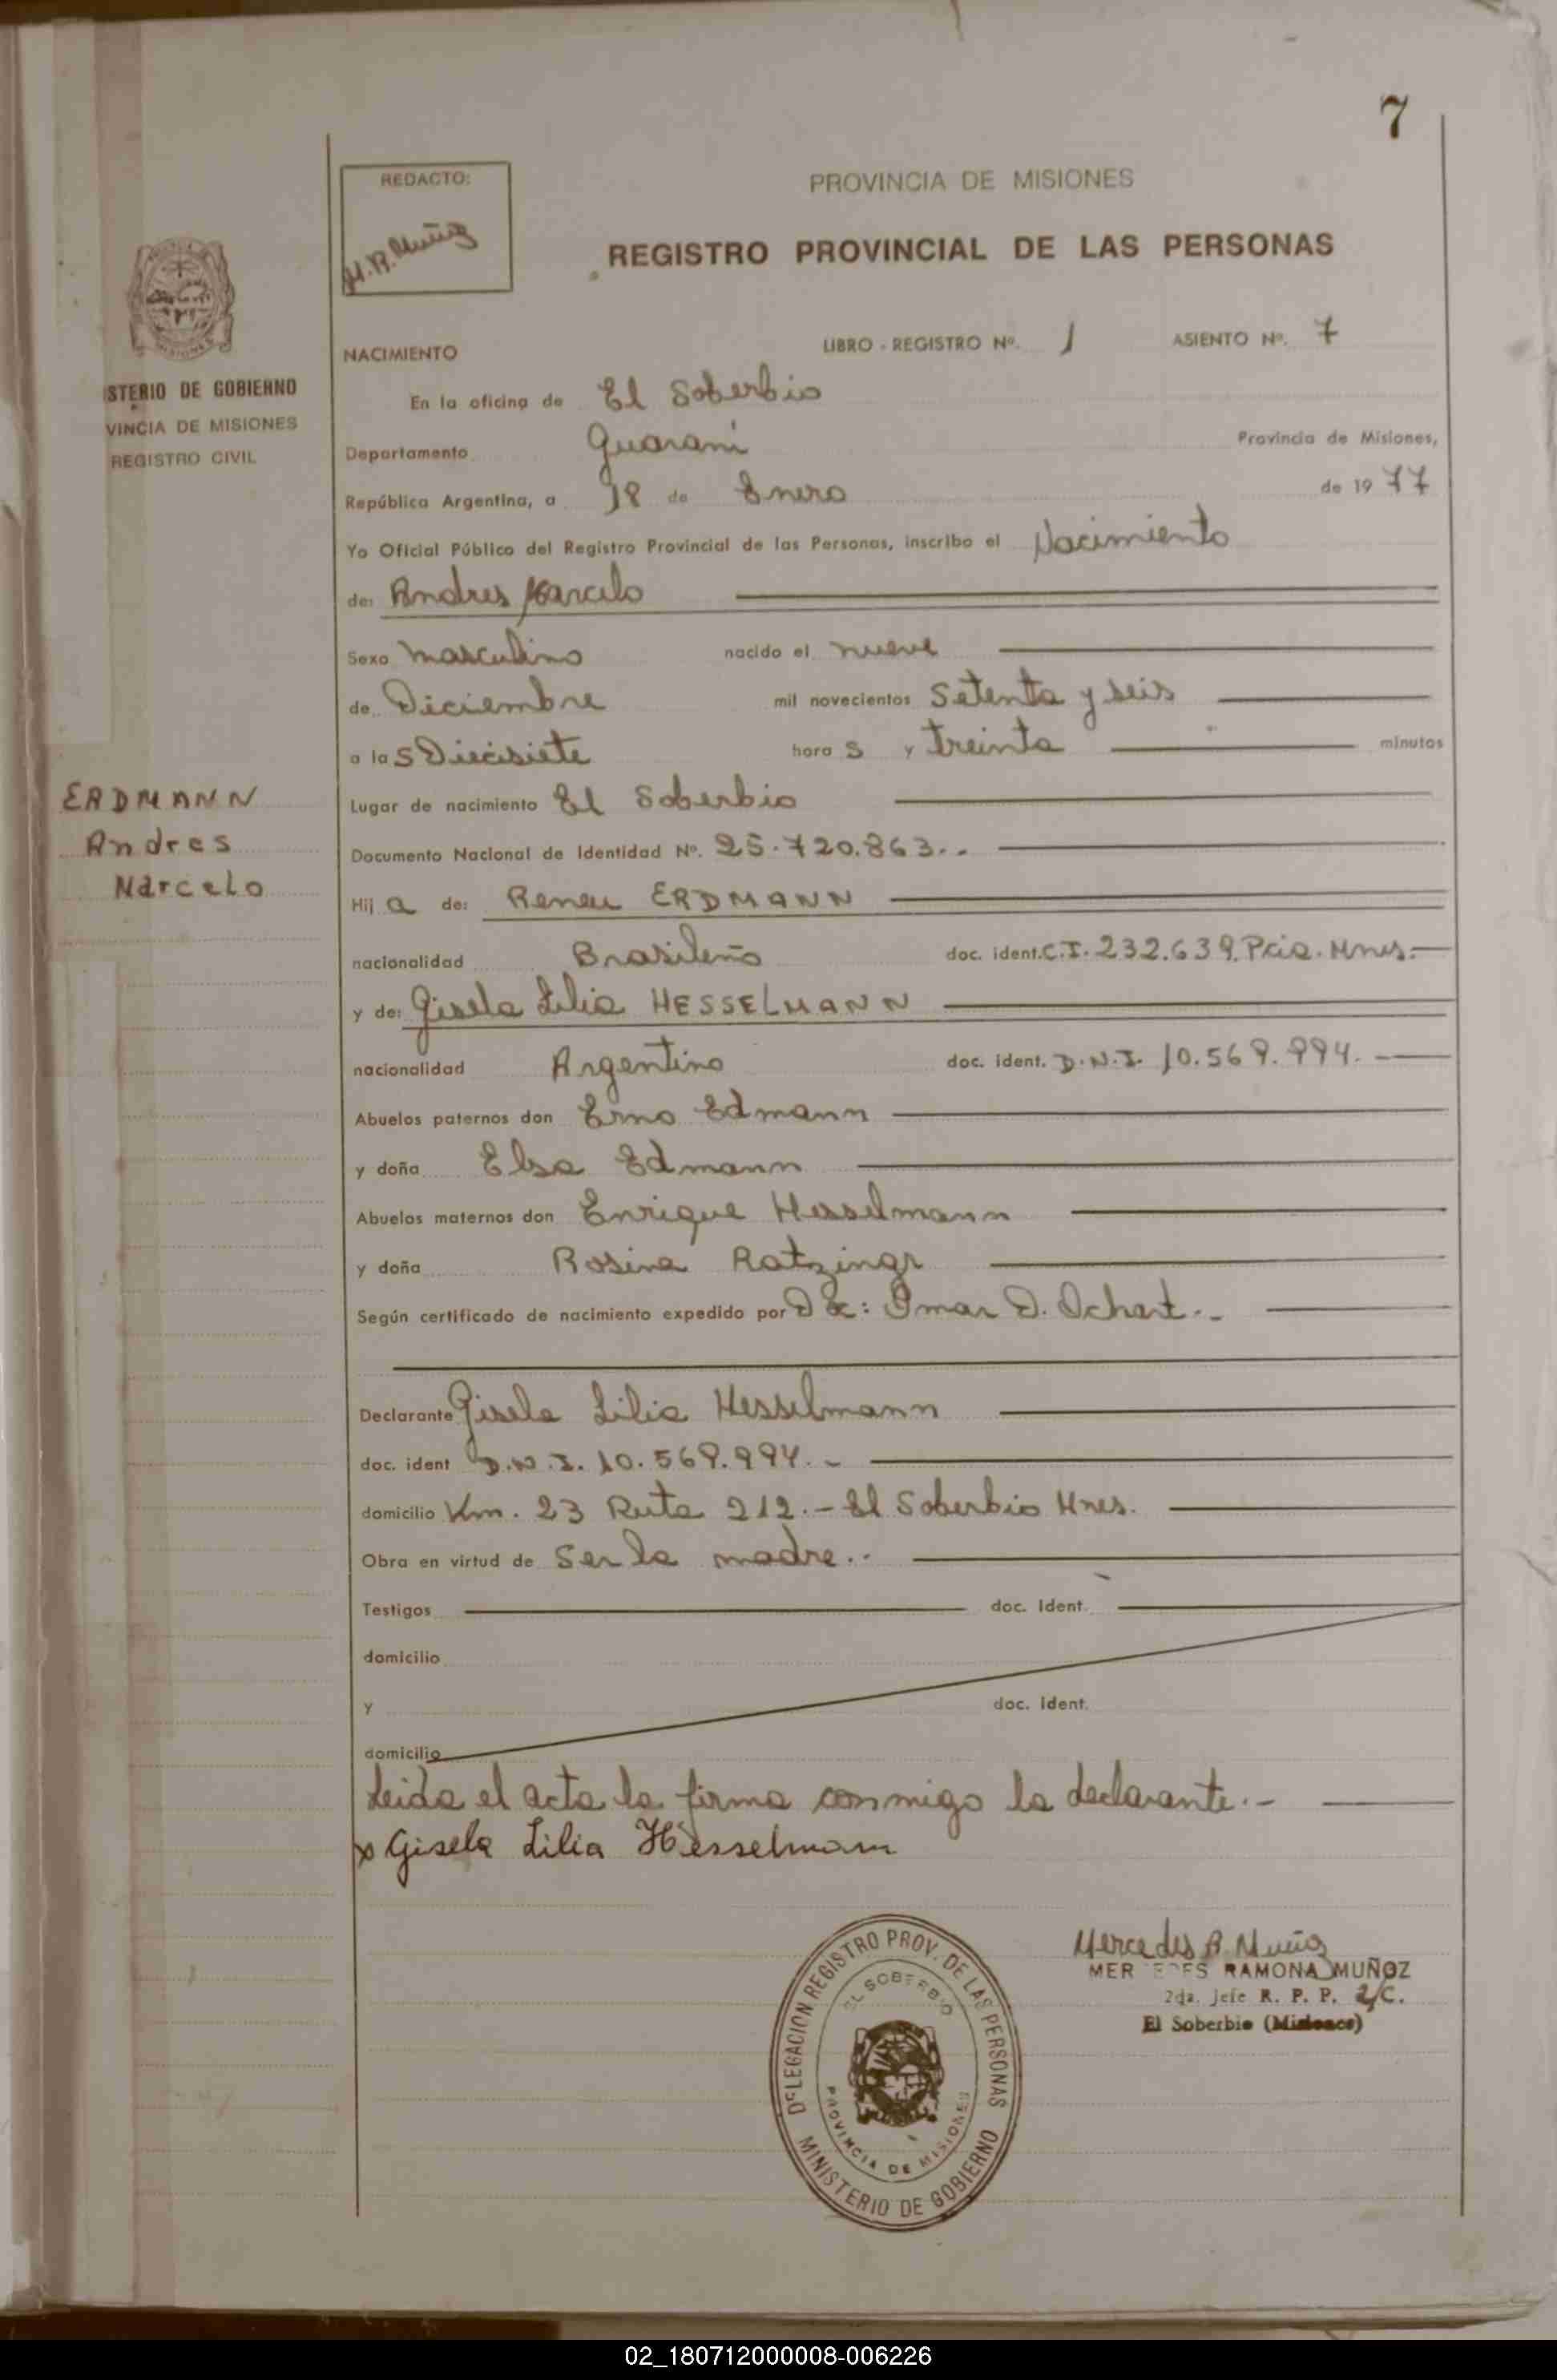 7
REDACTO:
M.R. Muñoz
PROVINCIA DE MISIONES
REGISTRO PROVINCIAL DE LAS PERSONAS
STERIO DE GOBIERNO
VINCIA DE MISIONES
REGISTRO CIVIL
NACIMIENTO
LIBRO - REGISTRO Nº. 1 ASIENTO Nº. 7
En la oficina de El Soberbio
Departamento Guarani Provincia de Misiones,
República Argentina, a 18 de Enero de 1977
Yo Oficial Público del Registro Provincial de las Personas, inscribo el Nacimiento
de: Andres Marcelo
Sexo Masculino nacido el nueve
de Diciembre mil novecientos Setenta y seis
a las Diecisiete horas y treinta minutos
ERDMANN
Andres
Marcelo
Lugar de nacimiento El Soberbio
Documento Nacional de Identidad Nº. 25.720.863..
Hij a de: Reneu ERDMANN
nacionalidad Brasileño doc. ident. C.I. 232.639. Pcia. Mnes.
y de: Gisela Lilia HESSELMANN
nacionalidad Argentina doc. ident. D.N.I. 10.569.994.
Abuelos paternos don Erno Edmann
y doña Elsa Edmann
Abuelos maternos don Enrique Hesselmann
y doña Rosina Ratzingr
Según certificado de nacimiento expedido por Omar D. Ochart.-
Declarante Gisela Lilia Hesselmann
doc. ident D.N.I. 10.569.994.-
domicilio Km. 23 Ruta 212.- El Soberbio Mnes.
Obra en virtud de Ser la madre..
Testigos doc. Ident.
domicilio
y doc. ident.
domicilio
Leida el acta la firma conmigo la declarante.-
x Gisela Lilia Hesselmann
Mercedes R. Muñoz
MER EDES RAMONA MUÑOZ
2da. Jefe R. P. P. a/C.
El Soberbio (Misiones)
DELEGACION REGISTRO PROV. DE LAS PERSONAS
EL SOBERBIO
PROVINCIA DE MISIONES
MINISTERIO DE GOBIERNO
02_180712000008-006226